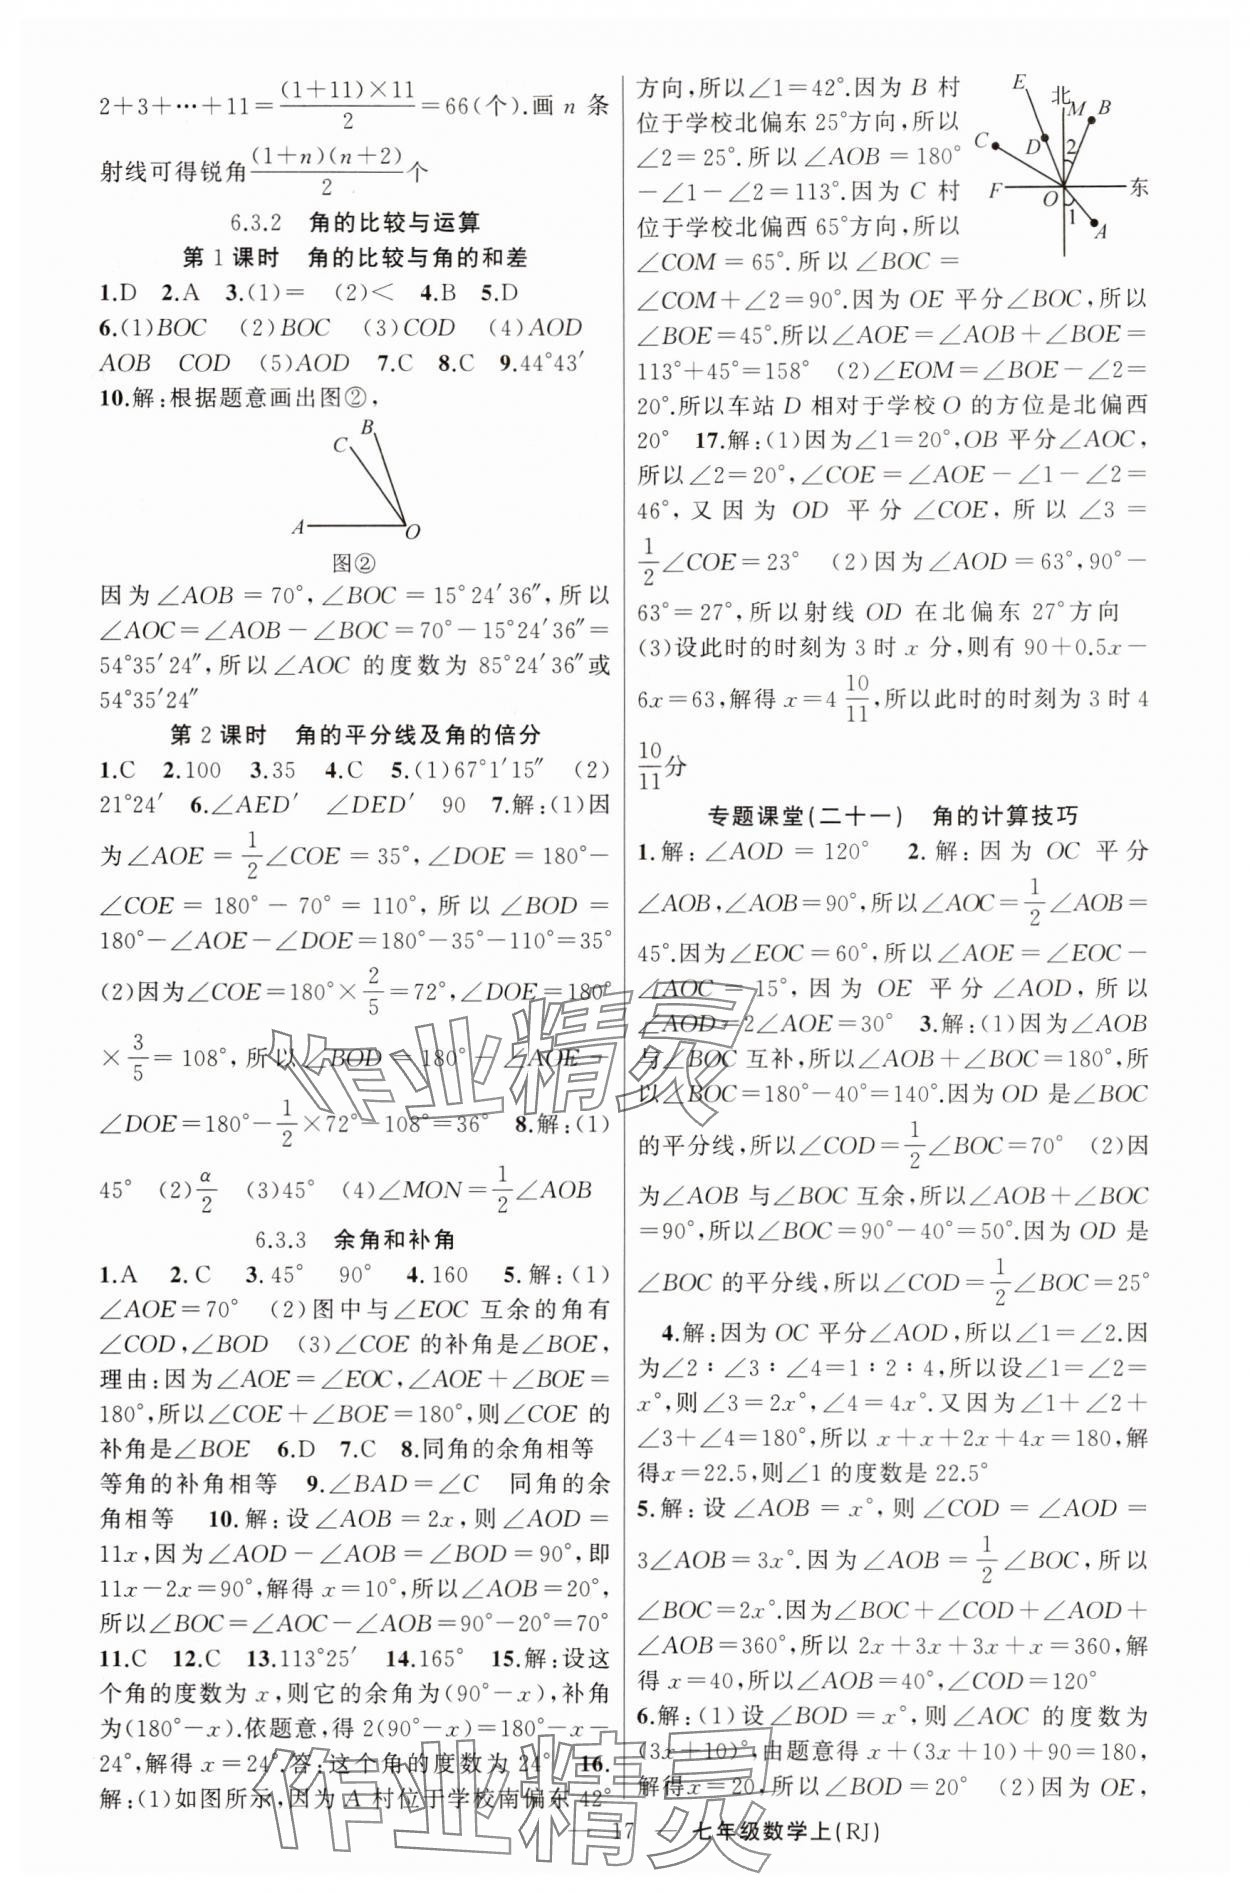 2+3+…+11=\frac{(1+11)×11}{2}=66(个).画 n 条
射线可得锐角\frac{(1+n)(n+2)}{2}个
6.3.2 角的比较与运算
第 1 课时 角的比较与角的和差
1.D 2.A 3.(1)= (2)< 4.B 5.D
6.(1)BOC (2)BOC (3)COD (4)AOD
AOB COD (5)AOD 7.C 8.C 9.44°43′
10.解:根据题意画出图②,
B
C
A
O
图②
因为∠AOB=70°,∠BOC=15°24′36″,所以
∠AOC=∠AOB-∠BOC=70°-15°24′36″=
54°35′24″,所以∠AOC 的度数为 85°24′36″或
54°35′24″
第 2 课时 角的平分线及角的倍分
1.C 2.100 3.35 4.C 5.(1)67°1′15″ (2)
21°24′ 6.∠AED′ ∠DED′ 90 7.解:(1)因
为∠AOE=\frac{1}{2}∠COE=35°,∠DOE=180°-
∠COE=180°-70°=110°,所以∠BOD=
180°-∠AOE-∠DOE=180°-35°-110°=35°
(2)因为∠COE=180°×\frac{2}{5}=72°,∠DOE=180°
×\frac{3}{5}=108°,所以∠BOD=180°-∠AOE-
∠DOE=180°-\frac{1}{2}×72°-108°=36° 8.解:(1)
45° (2)\frac{α}{2} (3)45° (4)∠MON=\frac{1}{2}∠AOB
6.3.3 余角和补角
1.A 2.C 3.45° 90° 4.160 5.解:(1)
∠AOE=70° (2)图中与∠EOC 互余的角有
∠COD,∠BOD (3)∠COE 的补角是∠BOE,
理由:因为∠AOE=∠EOC,∠AOE+∠BOE=
180°,所以∠COE+∠BOE=180°,则∠COE 的
补角是∠BOE 6.D 7.C 8.同角的余角相等
等角的补角相等 9.∠BAD=∠C 同角的余
角相等 10.解:设∠AOB=2x,则∠AOD=
11x,因为∠AOD-∠AOB=∠BOD=90°,即
11x-2x=90°,解得 x=10°,所以∠AOB=20°,
所以∠BOC=∠AOC-∠AOB=90°-20°=70°
11.C 12.C 13.113°25′ 14.165° 15.解:设这
个角的度数为 x,则它的余角为(90°-x),补角
为(180°-x).依题意,得 2(90°-x)=180°-x-
24°,解得 x=24°.答:这个角的度数为 24° 16.
解:(1)如图所示,因为 A 村位于学校南偏东 42°
方向,所以∠1=42°.因为 B 村
位于学校北偏东 25°方向,所以
∠2=25°.所以∠AOB=180°
-∠1-∠2=113°.因为 C 村
位于学校北偏西 65°方向,所以
∠COM=65°.所以∠BOC=
E
北
M
B
C
D
2
F
O
东
1
A
∠COM+∠2=90°.因为 OE 平分∠BOC,所以
∠BOE=45°.所以∠AOE=∠AOB+∠BOE=
113°+45°=158° (2)∠EOM=∠BOE-∠2=
20°.所以车站 D 相对于学校 O 的方位是北偏西
20° 17.解:(1)因为∠1=20°,OB 平分∠AOC,
所以∠2=20°,∠COE=∠AOE-∠1-∠2=
46°,又因为 OD 平分∠COE,所以∠3=
\frac{1}{2}∠COE=23° (2)因为∠AOD=63°,90°-
63°=27°,所以射线 OD 在北偏东 27°方向
(3)设此时的时刻为 3 时 x 分,则有 90+0.5x-
6x=63,解得 x=4\frac{10}{11},所以此时的时刻为 3 时 4
\frac{10}{11}分
专题课堂(二十一) 角的计算技巧
1.解:∠AOD=120° 2.解:因为 OC 平分
∠AOB,∠AOB=90°,所以∠AOC=\frac{1}{2}∠AOB=
45°.因为∠EOC=60°,所以∠AOE=∠EOC-
∠AOC=15°,因为 OE 平分∠AOD,所以
∠AOD=2∠AOE=30° 3.解:(1)因为∠AOB
与∠BOC 互补,所以∠AOB+∠BOC=180°,所
以∠BOC=180°-40°=140°.因为 OD 是∠BOC
的平分线,所以∠COD=\frac{1}{2}∠BOC=70° (2)因
为∠AOB 与∠BOC 互余,所以∠AOB+∠BOC
=90°,所以∠BOC=90°-40°=50°.因为 OD 是
∠BOC 的平分线,所以∠COD=\frac{1}{2}∠BOC=25°
4.解:因为 OC 平分∠AOD,所以∠1=∠2.因
为∠2∶∠3∶∠4=1∶2∶4,所以设∠1=∠2=
x°,则∠3=2x°,∠4=4x°.又因为∠1+∠2+
∠3+∠4=180°,所以 x+x+2x+4x=180,解
得x=22.5,则∠1 的度数是 22.5°
5.解:设∠AOB=x°,则∠COD=∠AOD=
3∠AOB=3x°.因为∠AOB=\frac{1}{2}∠BOC,所以
∠BOC=2x°.因为∠BOC+∠COD+∠AOD+
∠AOB=360°,所以 2x+3x+3x+x=360,解
得 x=40,所以∠AOB=40°,∠COD=120°
6.解:(1)设∠BOD=x°,则∠AOC 的度数为
(3x+10)°,由题意得 x+(3x+10)+90=180,
解得x=20,所以∠BOD=20° (2)因为 OE,
作业精灵
作业精灵
— 17 — 七年级数学上(RJ)